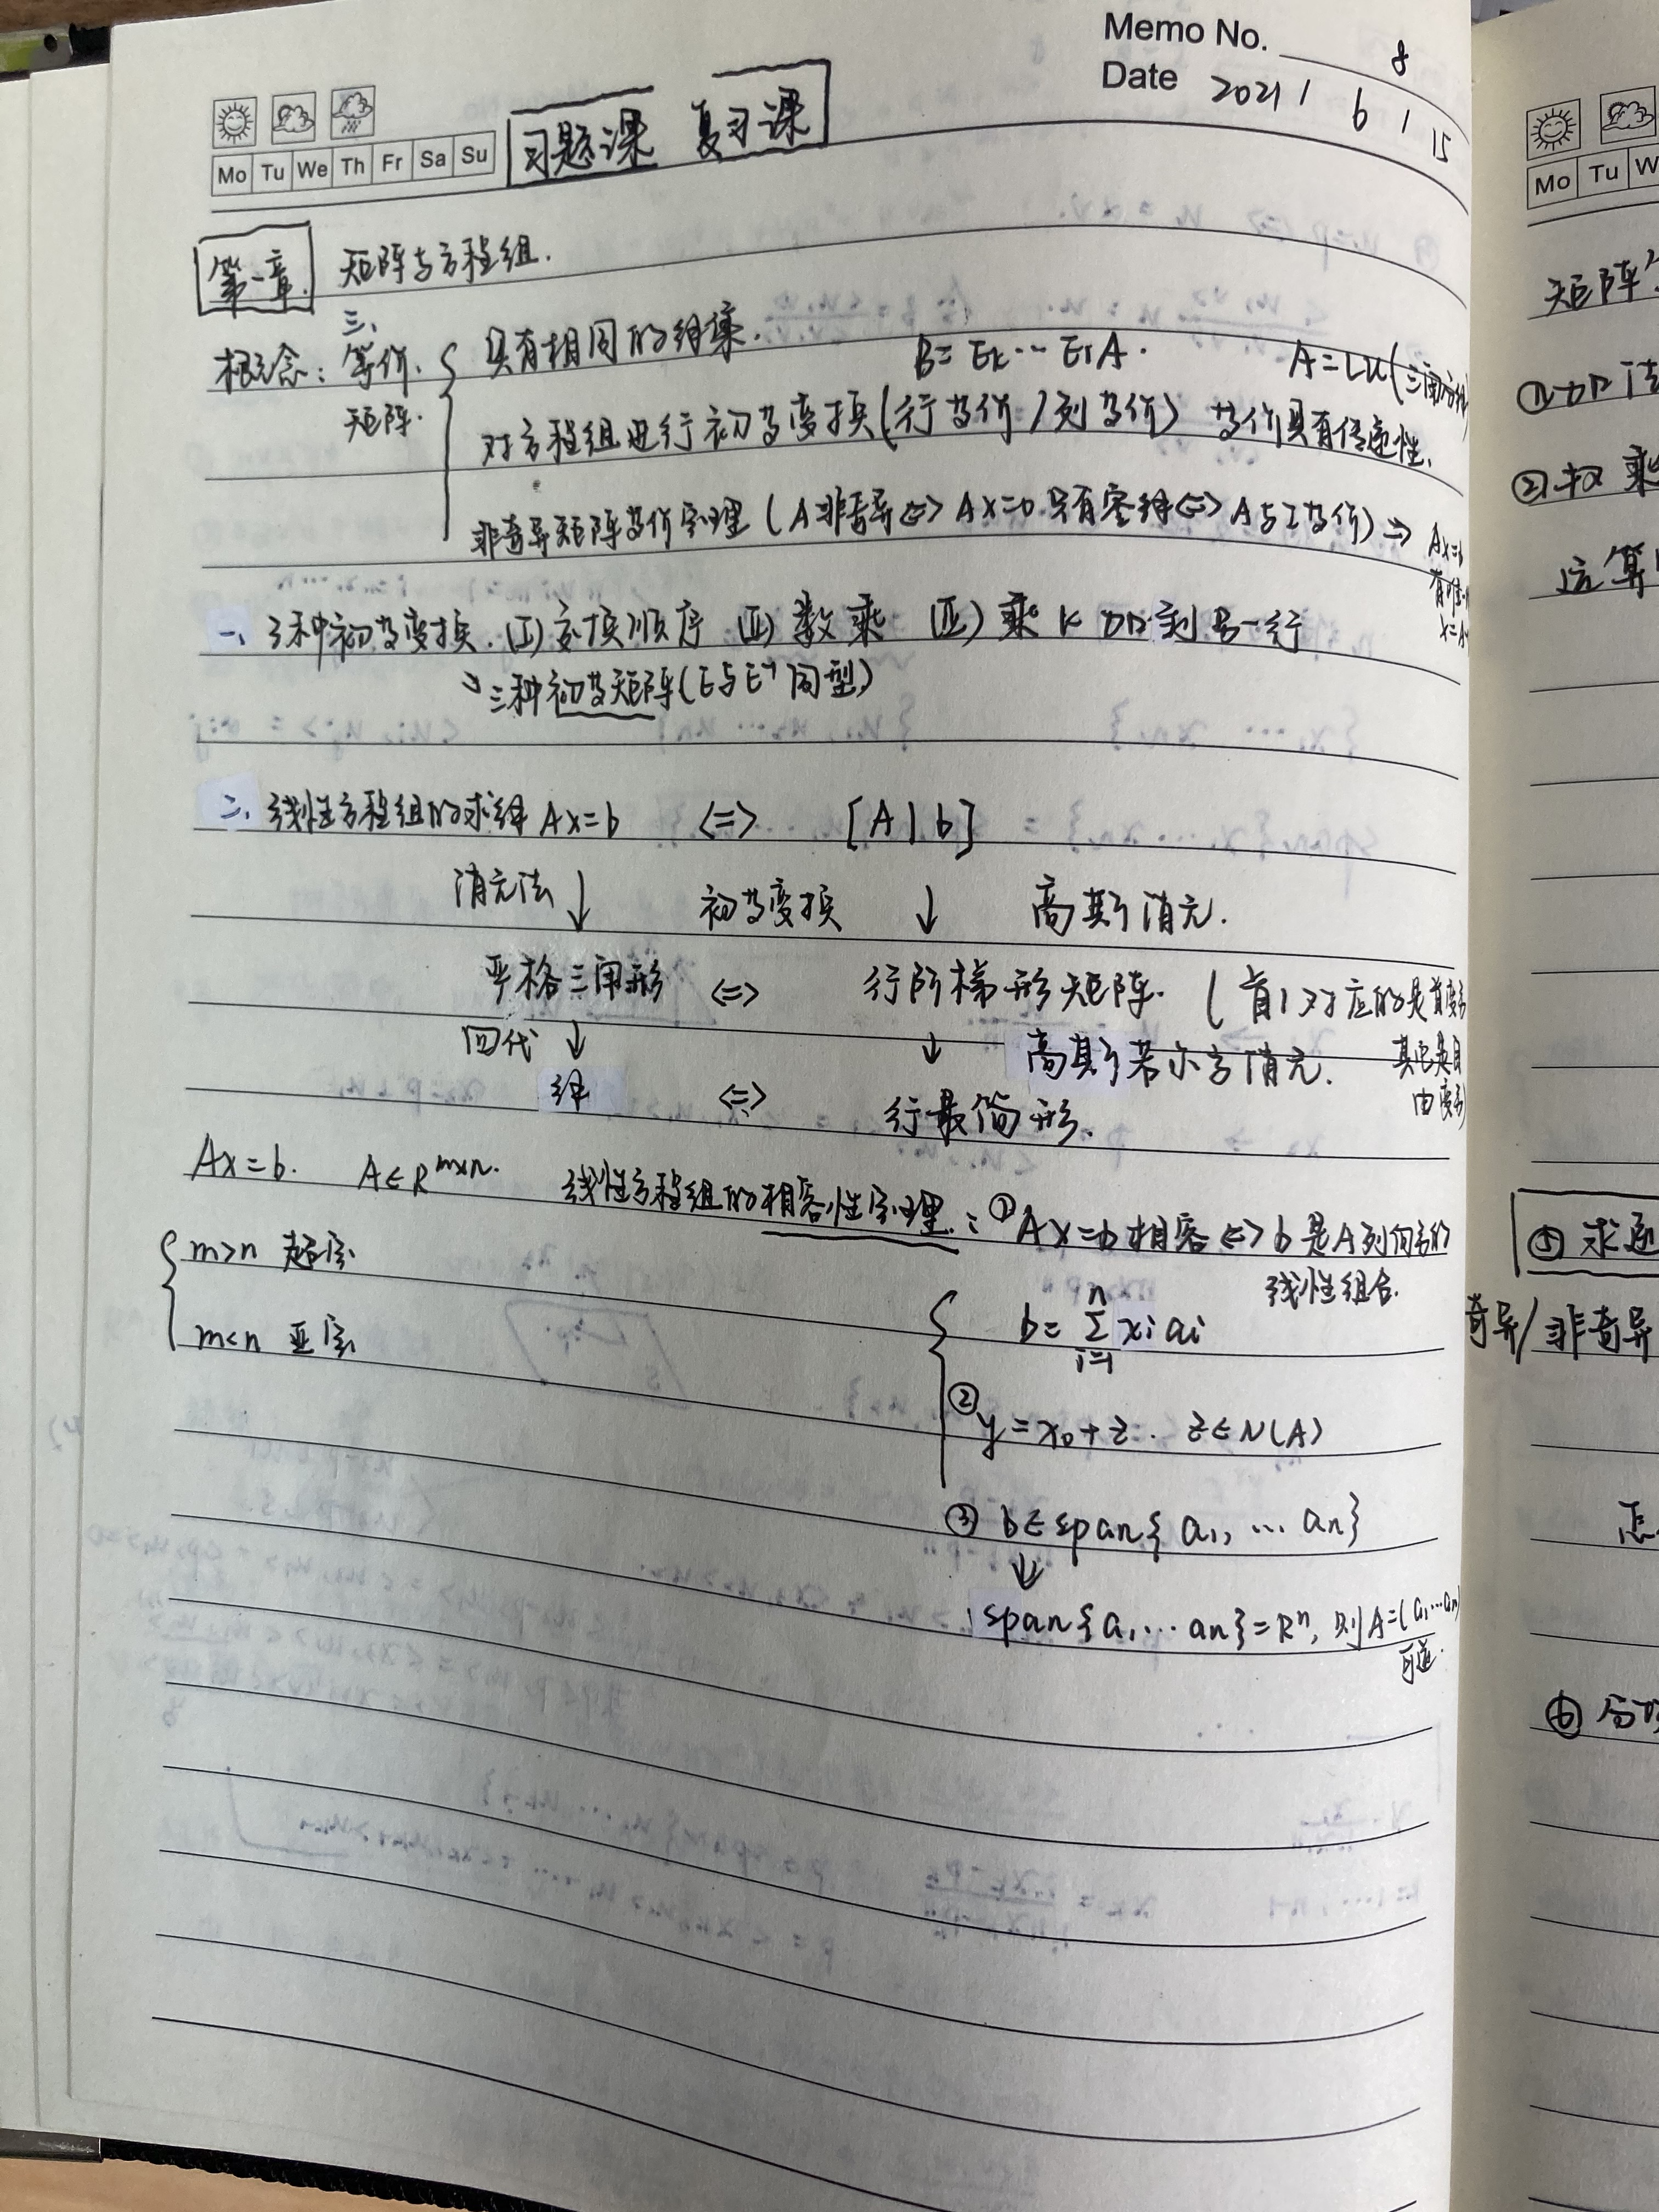 Memo No. 8
Date 2021 / 6 / 15
Mo Tu We Th Fr Sa Su
习题课 复习课
第一章. 矩阵与方程组.
三、
概念: 等价 具有相同的解集. B = Ek … E1A. A = LU (三角分解)
矩阵. 对方程组进行初等变换(行等价/列等价) 等价具有传递性.
非奇异矩阵等价定理 (A非奇异⇔ Ax=0 只有零解⇔ A与I等价) ⇒ Ax=b
有唯一
一、3种初等变换. (I) 交换顺序 (II) 数乘 (III) 乘 k 加到另一行
↘三种初等矩阵(E与E⁻¹同型)
二、线性方程组的求解 Ax=b ⇔ [A|b]
消元法 ↓ 初等变换 ↓ 高斯消元.
严格三角形 ⇔ 行阶梯形矩阵. (首1对应的是首变量
回代 ↓ ↓ 高斯若尔当消元. 其它是自
由变量)
解 ⇔ 行最简形.
Ax=b. A∈R^{m×n}. 线性方程组的相容性定理: ① Ax=b 相容 ⇔ b 是A列向量的
线性组合.
m>n 超定
m<n 亚定
b = \sum_{i=1}^{n} xi ai
② y = x0 + z. z∈N(A)
③ b∈span{a1, … an}
↓
span{a1, … an} = Rⁿ, 则A=(a1…an)
可逆.
Mo Tu W
矩阵
①加法
②数乘
运算
⑤ 求逆
奇异/非奇异
⑥ 分块